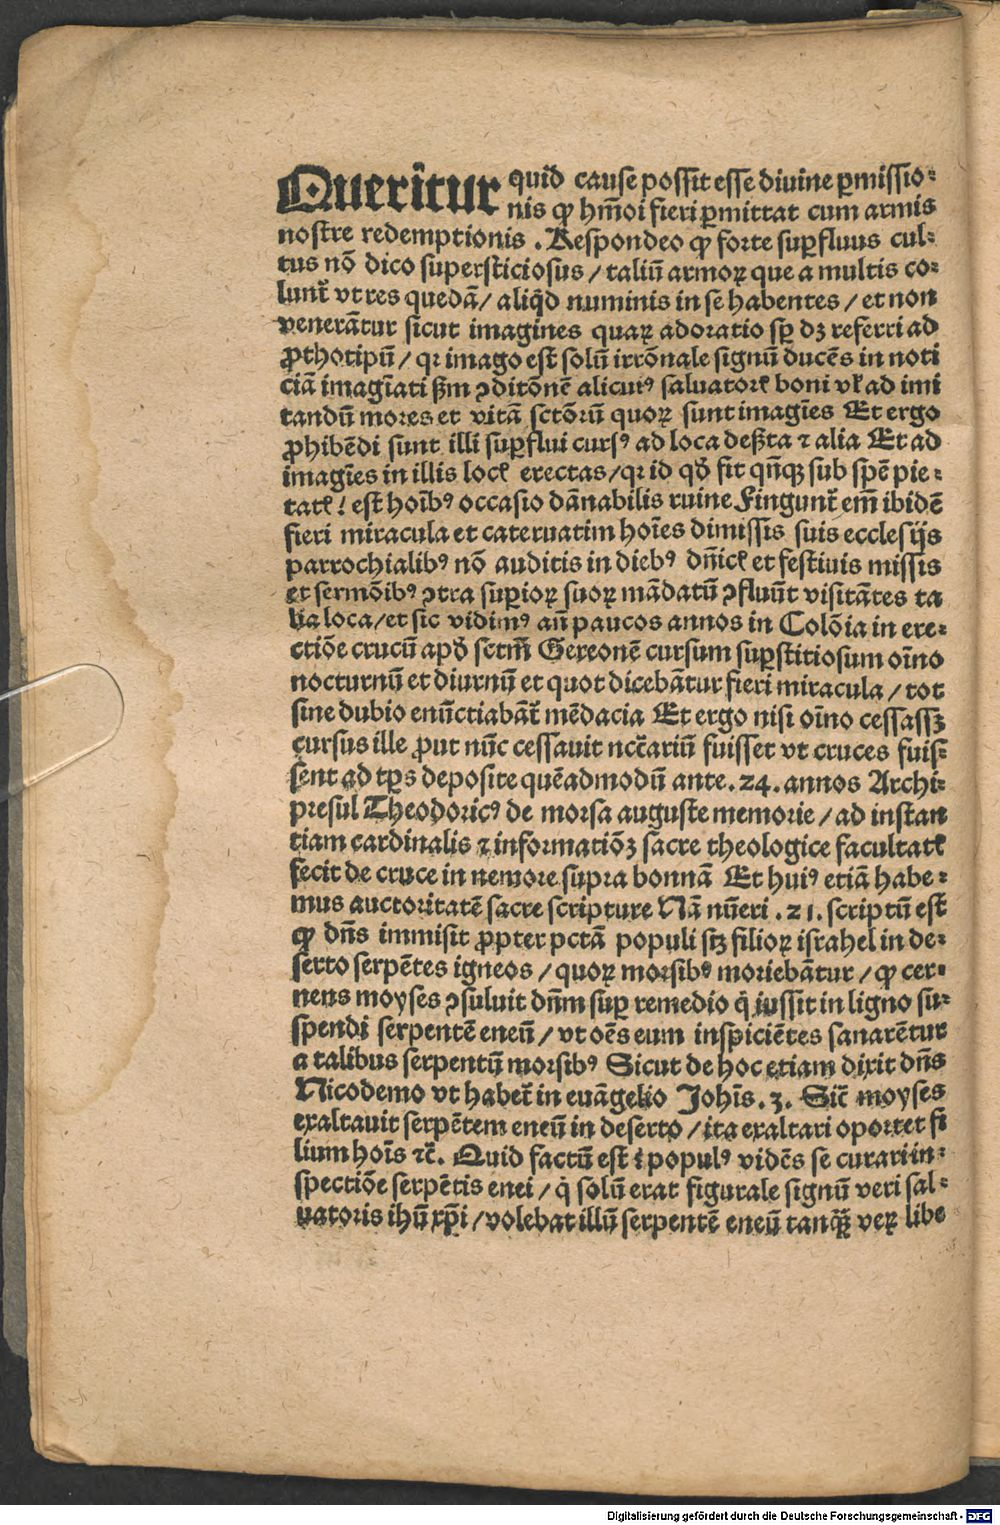 Querit̄ur quid cause possit esse diuine ꝑmissio⸗
nis ꝙ hm̄oi fieri ꝑmittat cum armis
nostre redemptionis . Respondeo ꝙ forte suꝑfluus cul⸗
tus nō dico supersticiosus / taliū armoꝝ que a multis co⸗
lunt᷑ vt res quedā / aliq̄d numinis in se habentes / et non
venerātur sicut imagines quaꝝ adoratio sꝑ dꝫ referri ad
ꝓthotipū / qꝛ imago est solū irrōnale signū ducēs in noti
ciā imagīati ẜm ꝯditōnē alicuiꝰ saluatorꝭ boni vl̄ ad imi
tandū mores et vitā sctōrū quoꝝ sunt imagīes Et ergo
ꝓhibēdi sunt illi suꝑflui cursꝰ ad loca deẜta ⁊ alia Et ad
imagīes in illis locꝭ erectas / qꝛ id qđ fit qn̄qꝫ sub spē pie⸗
tatꝭ ! est hoīb⁹ occasio dānabilis ruine Fingunt᷑ em̄ ibidē
fieri miracula et cateruatim hoīes dimissis suis ecclesijs
parrochialib⁹ nō auditis in dieb⁹ dn̄icꝭ et festiuis missis
et sermōib⁹ ꝯtra suꝑioꝝ suoꝝ mādatū ꝯfluūt visitātes ta
lia loca / et sic vidim⁹ an̄ paucos annos in Colōia in ere⸗
ctiōe crucū apđ sctm̄ Gereonē cursum suꝑstitiosum oīno
nocturnū et diurnū et quot dicebātur fieri miracula / tot
sine dubio enūctiabāt᷑ mēdacia Et ergo nisi oīno cessassꝫ
cursus ille ꝓut nūc cessauit nc̄c̄ariū fuisset vt cruces fuis⸗
sent ad tꝑs deposite quēadmodū ante . 24 . annos Archi⸗
presul Theodoric⁹ de morsa auguste memorie / ad instan
tiam cardinalis ⁊ informatiōꝫ sacre theologice facultatꝭ
fecit de cruce in nemore supra bonnā Et hui⁹ etiā habe⸗
mus auctoritatē sacre scripture Nā nūeri . 21 . scriptū est
ꝙ dn̄s immisit ꝓpter pctā populi sꝫ filioꝝ israhel in de⸗
serto serpētes igneos / quoꝝ morsib⁹ moriebātur / ꝙ cer⸗
nens moyses ꝯsuluit dn̄m suꝑ remedio q̇ iussit in ligno su⸗
spendi serpentē eneū / vt oēs eum inspiciētes sanarētur
a talibus serpentū morsib⁹ Sicut de hoc etiam dixit dn̄s
Nicodemo vt habet᷑ in euāgelio Johīs . 3 . Sic̄ moyses
exaltauit serpētem eneū in deserto / ita exaltari oportet fi
lium hoīs ⁊c̄ . Quid factū est ī popul⁹ vidēs se curari in⸗
spectiōe serpētis enei / q̇ solū erat figurale signū veri sal⸗
uatoris ihū xp̄i / volebat illū serpentē eneū tanq̄ꝫ veꝝ libe
Digitalisierung gefördert durch die Deutsche Forschungsgemeinschaft - DFG